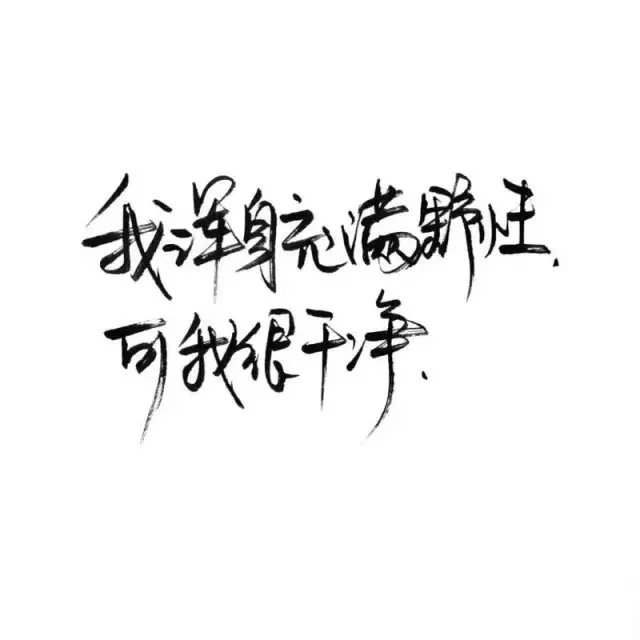 我浑身充满野性.
可我很干净.